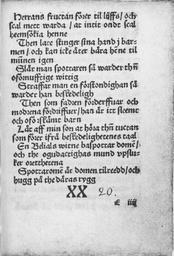 Herrans fructan förer til liffs / och
scal mett warda / at intit ondt scal
heemsökia henne
Then late stinger sina hand j bar-
men / och kan icke åter bära hene til
munnen igen
Slår man spottaren så warder then
ofönufftige wittig
Straffar man en förstondighan så
warder han beskedeligh
Then som fadren förderffuar och
modrena fördriffuer / han är itt slemt
och oföskämt barn
Låt aff min son at höra then tuctan
som förer ifrå beskedelighetenes taal
En Belials witne bespottar dome /
och the ogudactighas mund vpslu-
ker orettherena
Spottarome är domen tilredd / och
hugg på the dåras rygg
XX 20.